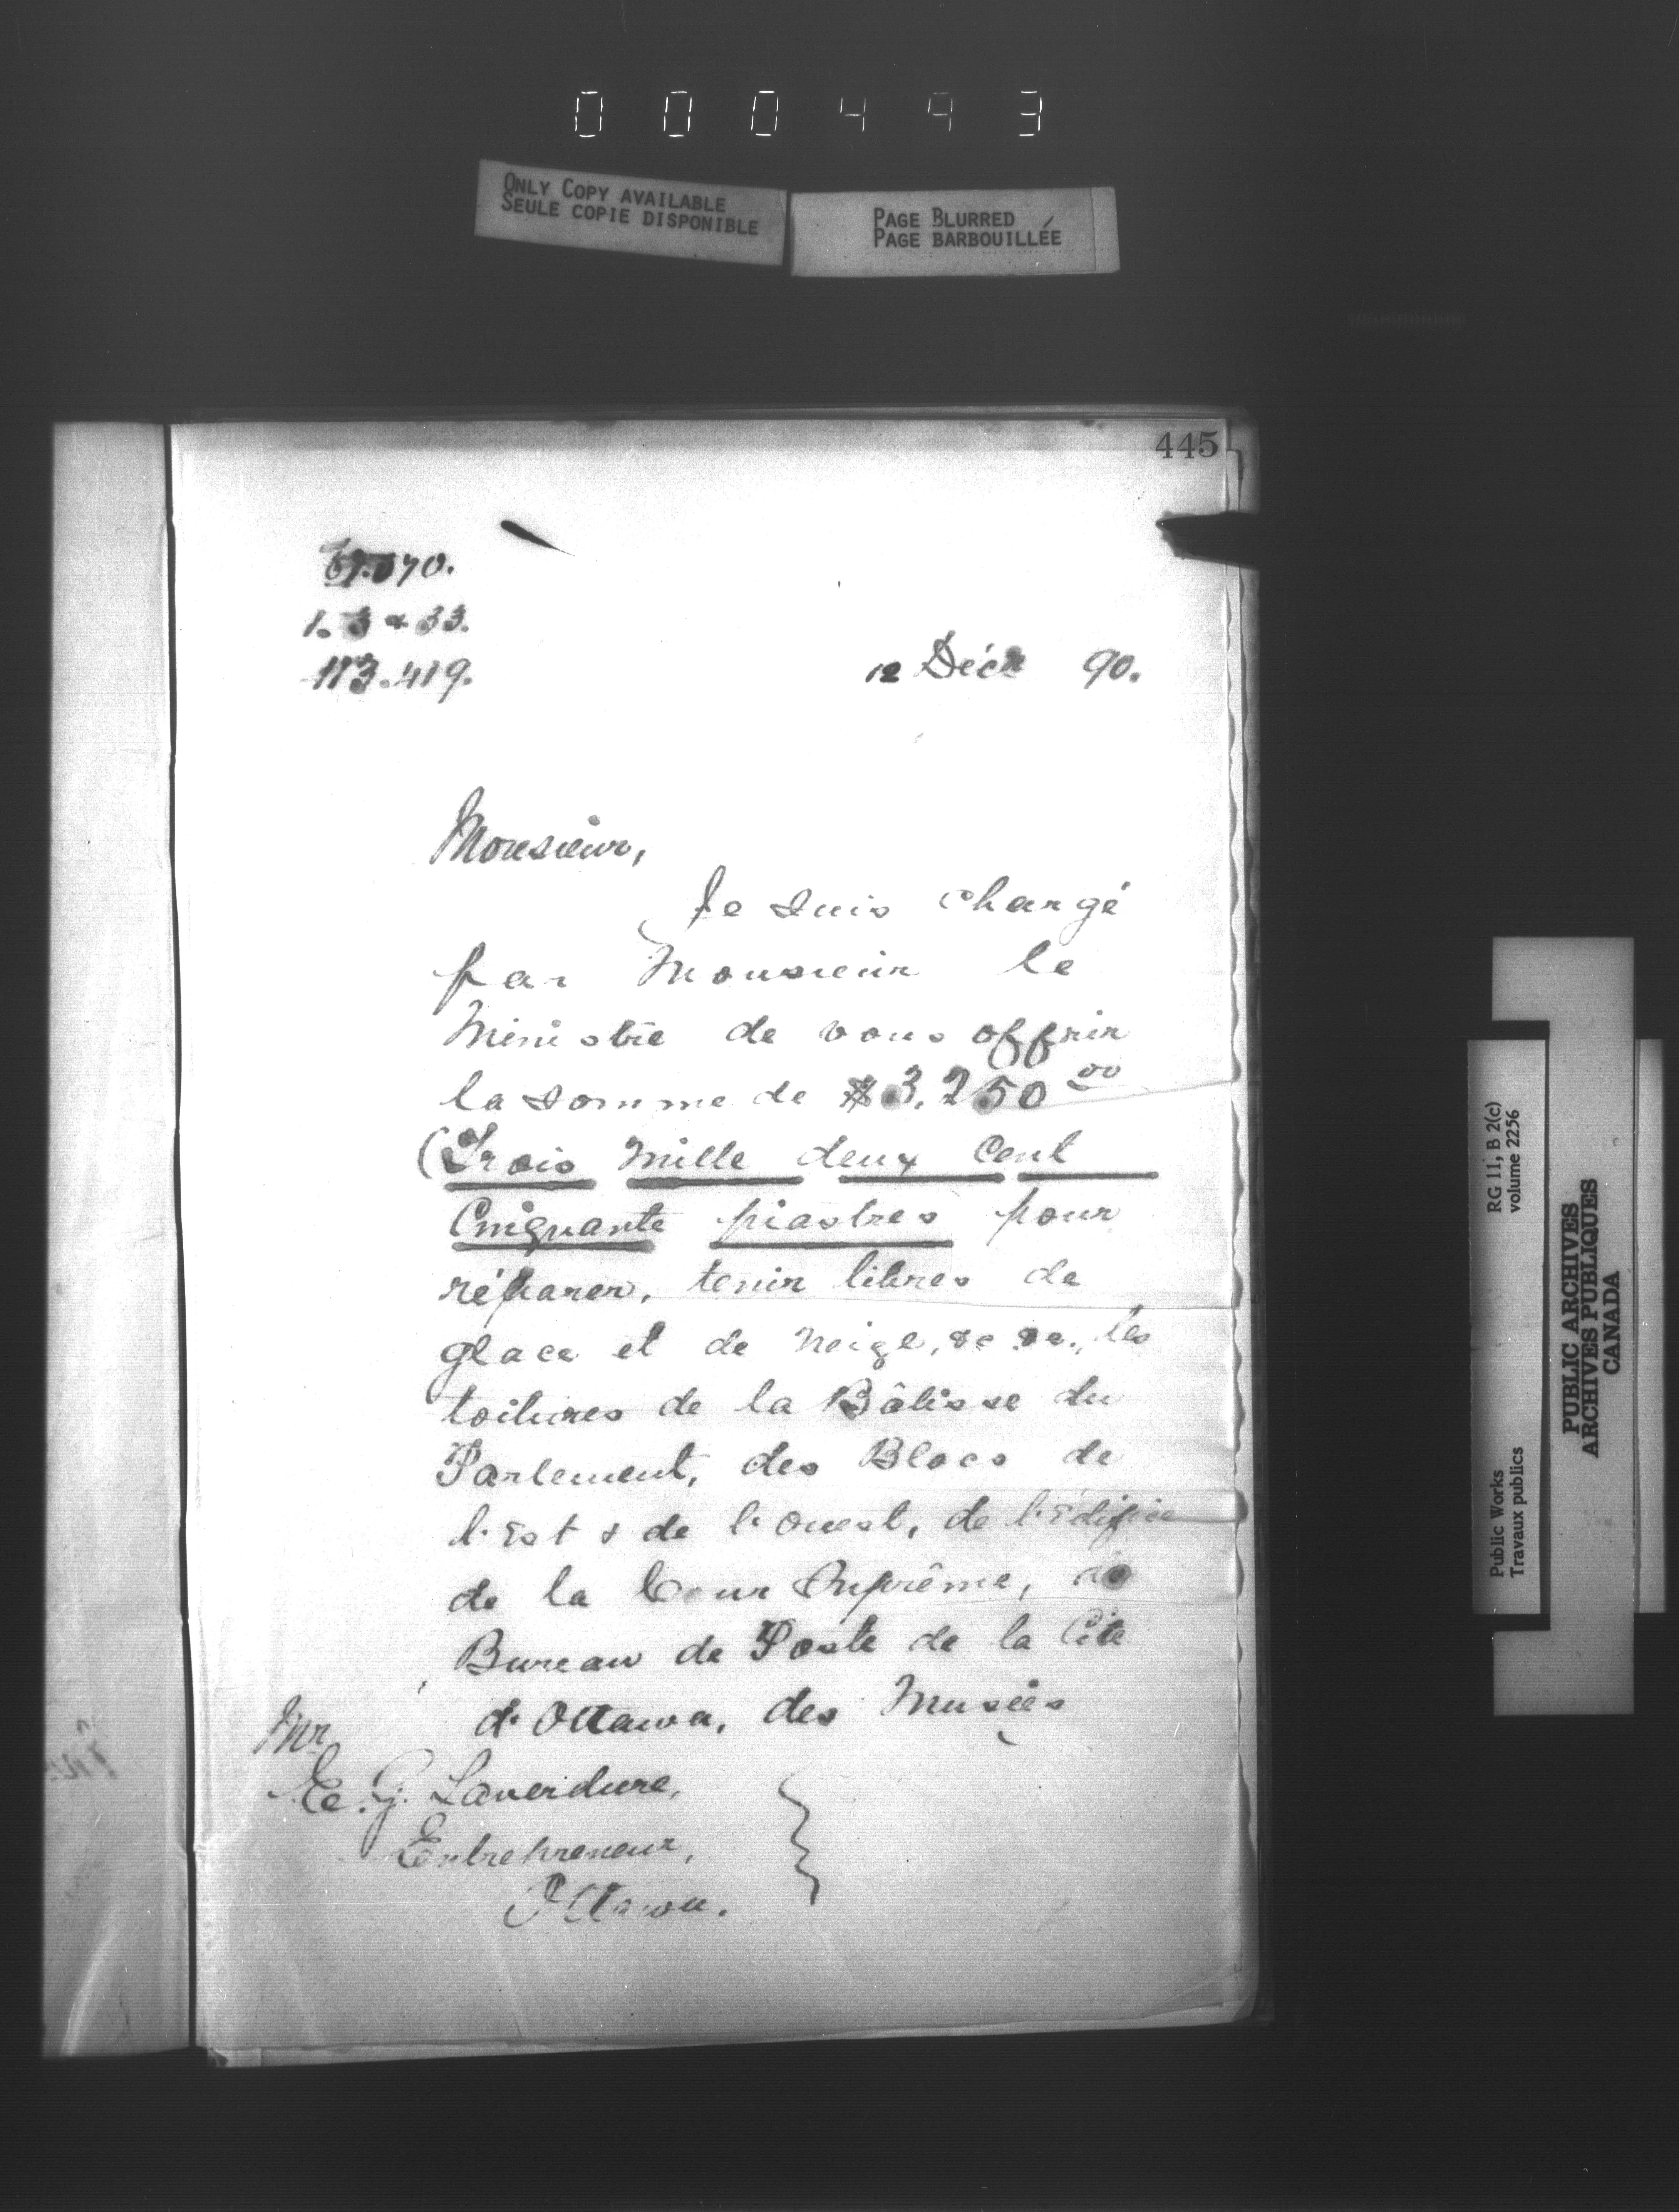 000493
ONLY COPY AVAILABLE
SEULE COPIE DISPONIBLE
PAGE BLURRED
PAGE BARBOUILLÉE
445
1. 3 & 33.
113.419.
12 Décr 90.
Monsieur,
Je suis chargé
par Monsieur le
Ministre de vous offrir
la somme de $3,250 00
(Trois Mille deux Cent
Cinquante piastres pour
réparer, tenir libres de
glace et de neige, &c &c., les
toitures de la Bâtisse du
Parlement, des Blocs de
l'Est & de l'ouest, de l'Edifice
de la Cour Suprême, du
Bureau de Poste de la Cité
d'Ottawa, des Musées
Mr
E. G. Laverdure,
Entrepreneur,
Ottawa.
RG 11, B 2(c)
volume 2256
Public Works
Travaux publics
PUBLIC ARCHIVES
ARCHIVES PUBLIQUES
CANADA